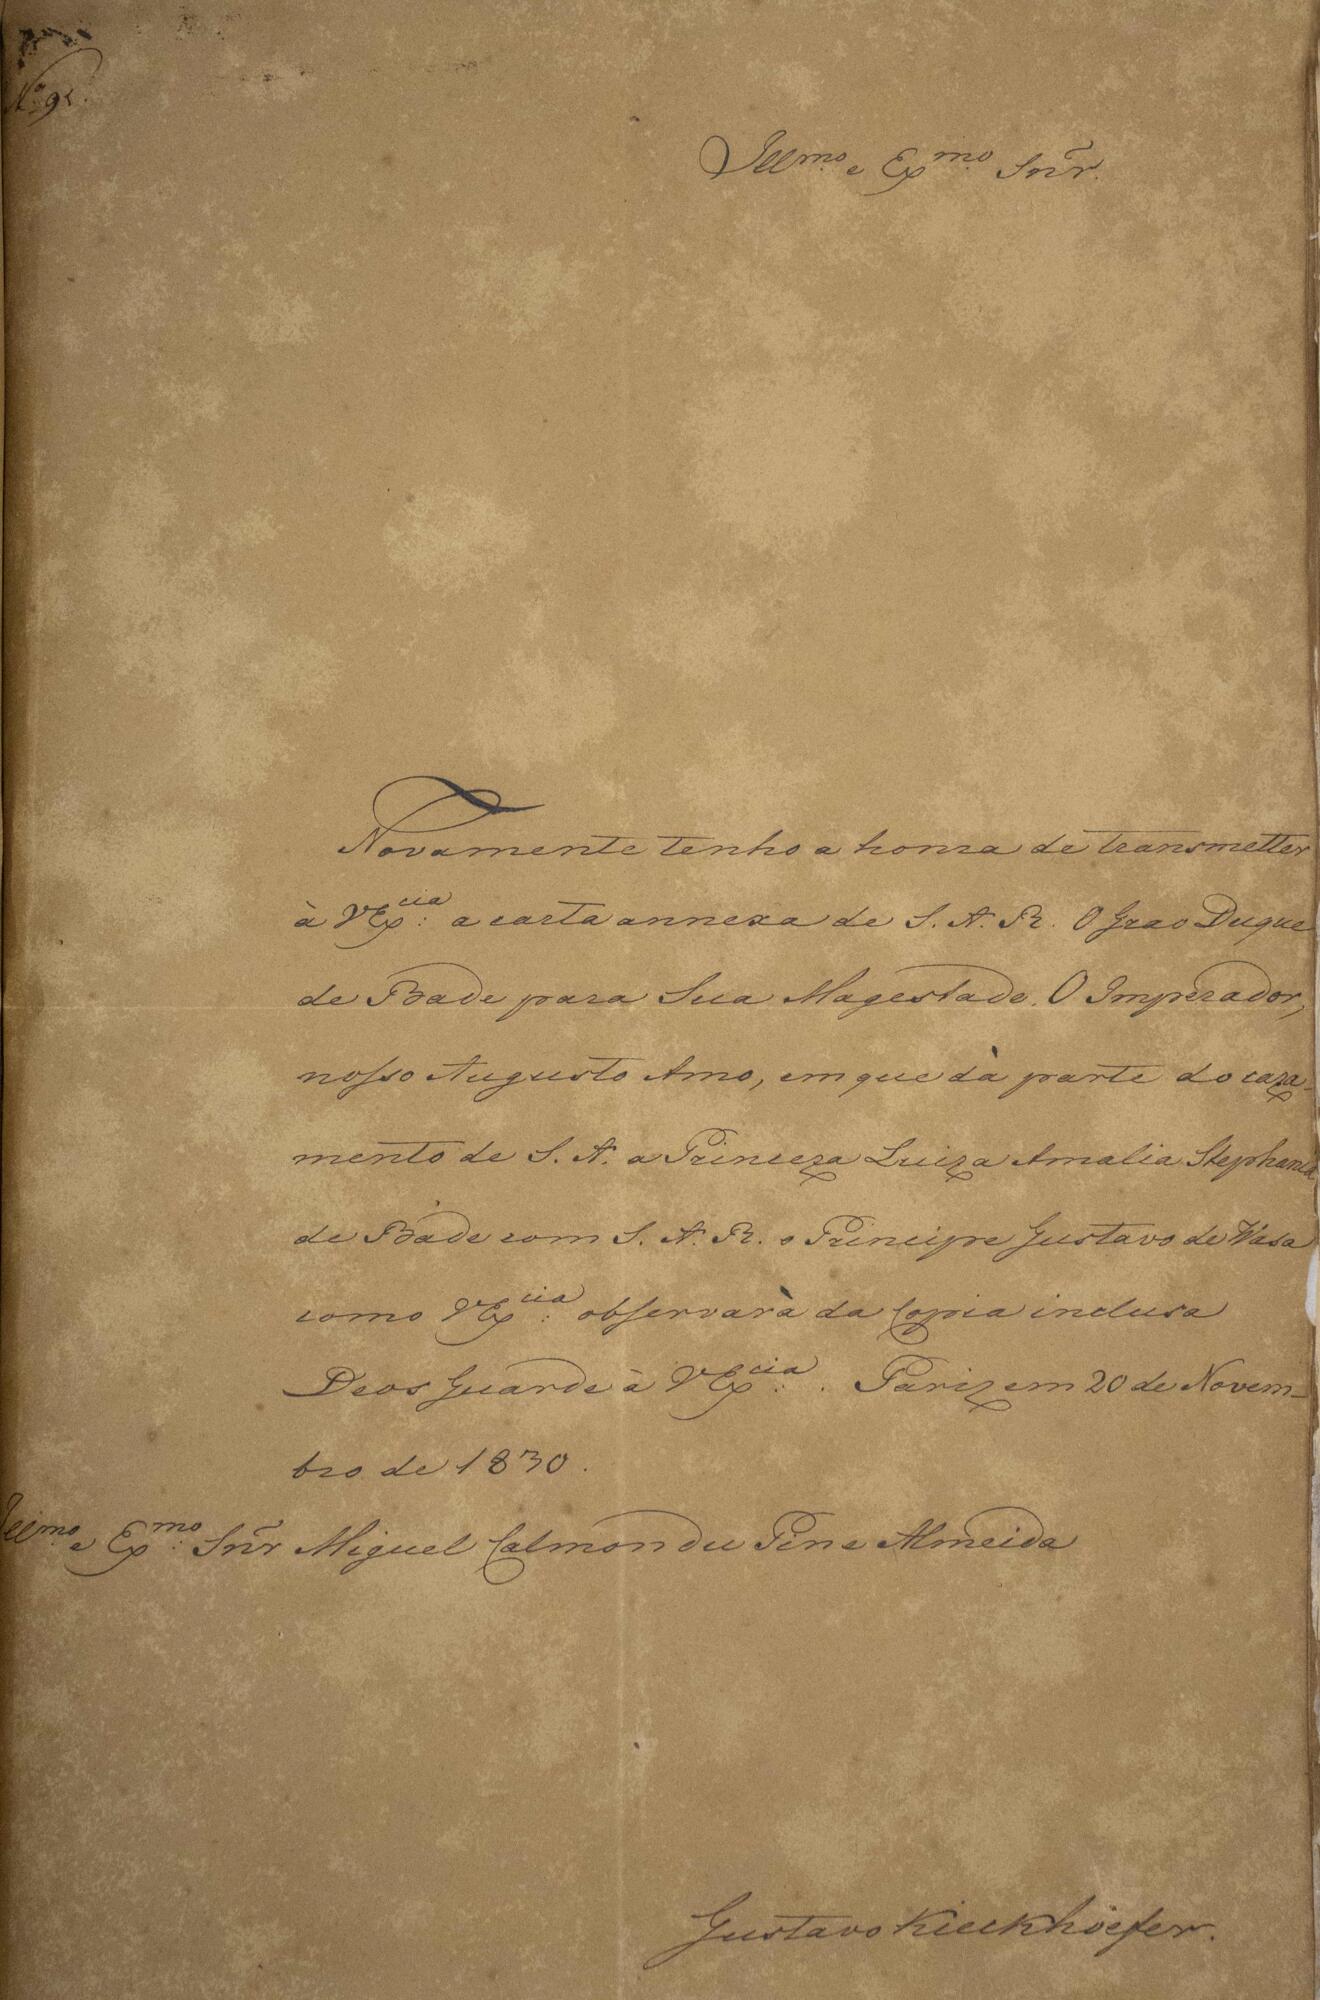 Nº 9
Illmo. e Exmo. Snr̃.
Novamente tenho a honra de transmetter
à VExcia: a carta annexa de S. A. R. O Grao Duque
de Bade para Sua Magestade. O Imperador,
nosso Augusto Amo, em que dà parte do caza-
mento de S. A. a Princeza Luiza Amalia Stephania
de Bade com S. A. R. o Principe Gustavo de Wasa
como VExcia: observarà da Copia inclusa
Deos Guarde à VExcia: . Pariz em 20 de Novem-
bro de 1830.
Illmo. e Exmo. Snr̃ Miguel Calmon du Pin e Almeida
Gustavo Kieckhöefer.